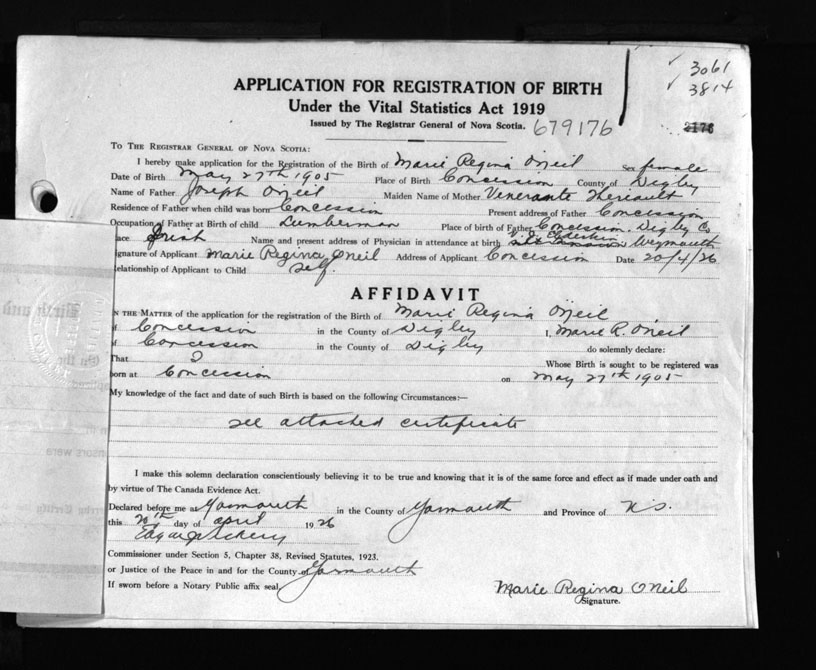 3061
3814
APPLICATION FOR REGISTRATION OF BIRTH
Under the Vital Statistics Act 1919
Issued by The Registrar General of Nova Scotia. 679176
2176
TO THE REGISTRAR GENERAL OF NOVA SCOTIA:
I hereby make application for the Registration of the Birth of Marie Regina O'Neil Sex female
Date of Birth May 27th 1905 Place of Birth Concession County of Digby
Name of Father Joseph O'Neil Maiden Name of Mother Venerante Theriault
Residence of Father when child was born Concession Present address of Father Concession
Occupation of Father at Birth of child Lumberman Place of birth of Father Concession. Digby Co
Race Irish Name and present address of Physician in attendance at birth Weymouth
Signature of Applicant Marie Regina O'Neil Address of Applicant Concession Date 20/4/26
Relationship of Applicant to Child self.
AFFIDAVIT
IN THE MATTER of the application for the registration of the Birth of Marie Regina O'Neil
of Concession in the County of Digby I, Marie R. O'Neil
of Concession in the County of Digby do solemnly declare:
That I Whose Birth is sought to be registered was
born at Concession on May 27th 1905
My knowledge of the fact and date of such Birth is based on the following Circumstances:—
see attached certificate
I make this solemn declaration conscientiously believing it to be true and knowing that it is of the same force and effect as if made under oath and
by virtue of The Canada Evidence Act.
Declared before me at Yarmouth in the County of Yarmouth and Province of N.S.
this 20th day of April 1926
Commissioner under Section 5, Chapter 38, Revised Statutes, 1923.
or Justice of the Peace in and for the County of Yarmouth
If sworn before a Notary Public affix seal.
Marie Regina O'Neil
Signature.